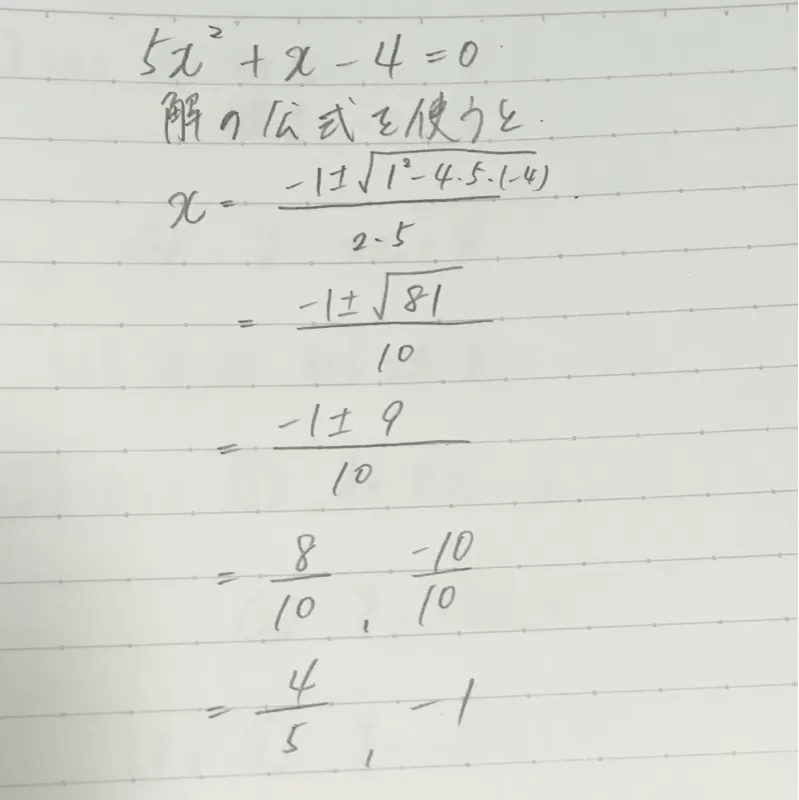 5x² + x - 4 = 0
解の公式を使うと
x = (-1 ± √(1² - 4・5・(-4))) / (2・5)
= (-1 ± √81) / 10
= (-1 ± 9) / 10
= 8/10 , -10/10
= 4/5 , -1